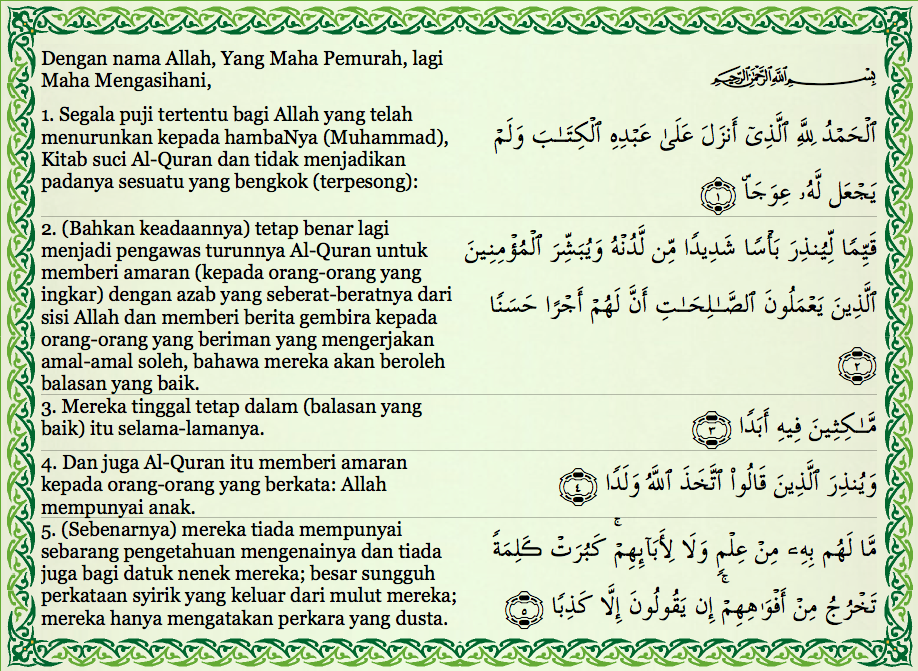 Dengan nama Allah, Yang Maha Pemurah, lagi
Maha Mengasihani,
بِسْمِ ٱللَّهِ ٱلرَّحْمَٰنِ ٱلرَّحِيمِ
1. Segala puji tertentu bagi Allah yang telah
menurunkan kepada hambaNya (Muhammad),
Kitab suci Al-Quran dan tidak menjadikan
padanya sesuatu yang bengkok (terpesong):
ٱلْحَمْدُ لِلَّهِ ٱلَّذِىٓ أَنزَلَ عَلَىٰ عَبْدِهِ ٱلْكِتَـٰبَ وَلَمْ
يَجْعَل لَّهُۥ عِوَجَاۜ ١
2. (Bahkan keadaannya) tetap benar lagi
menjadi pengawas turunnya Al-Quran untuk
memberi amaran (kepada orang-orang yang
ingkar) dengan azab yang seberat-beratnya dari
sisi Allah dan memberi berita gembira kepada
orang-orang yang beriman yang mengerjakan
amal-amal soleh, bahawa mereka akan beroleh
balasan yang baik.
قَيِّمًا لِّيُنذِرَ بَأْسًا شَدِيدًا مِّن لَّدُنْهُ وَيُبَشِّرَ ٱلْمُؤْمِنِينَ
ٱلَّذِينَ يَعْمَلُونَ ٱلصَّـٰلِحَـٰتِ أَنَّ لَهُمْ أَجْرًا حَسَنًا
٢
3. Mereka tinggal tetap dalam (balasan yang
baik) itu selama-lamanya.
مَّـٰكِثِينَ فِيهِ أَبَدًا ٣
4. Dan juga Al-Quran itu memberi amaran
kepada orang-orang yang berkata: Allah
mempunyai anak.
وَيُنذِرَ ٱلَّذِينَ قَالُوا۟ ٱتَّخَذَ ٱللَّهُ وَلَدًا ٤
5. (Sebenarnya) mereka tiada mempunyai
sebarang pengetahuan mengenainya dan tiada
juga bagi datuk nenek mereka; besar sungguh
perkataan syirik yang keluar dari mulut mereka;
mereka hanya mengatakan perkara yang dusta.
مَّا لَهُم بِهِۦ مِنْ عِلْمٍ وَلَا لِأَبَآئِهِمْ ۚ كَبُرَتْ كَلِمَةً
تَخْرُجُ مِنْ أَفْوَٰهِهِمْ ۚ إِن يَقُولُونَ إِلَّا كَذِبًا ٥